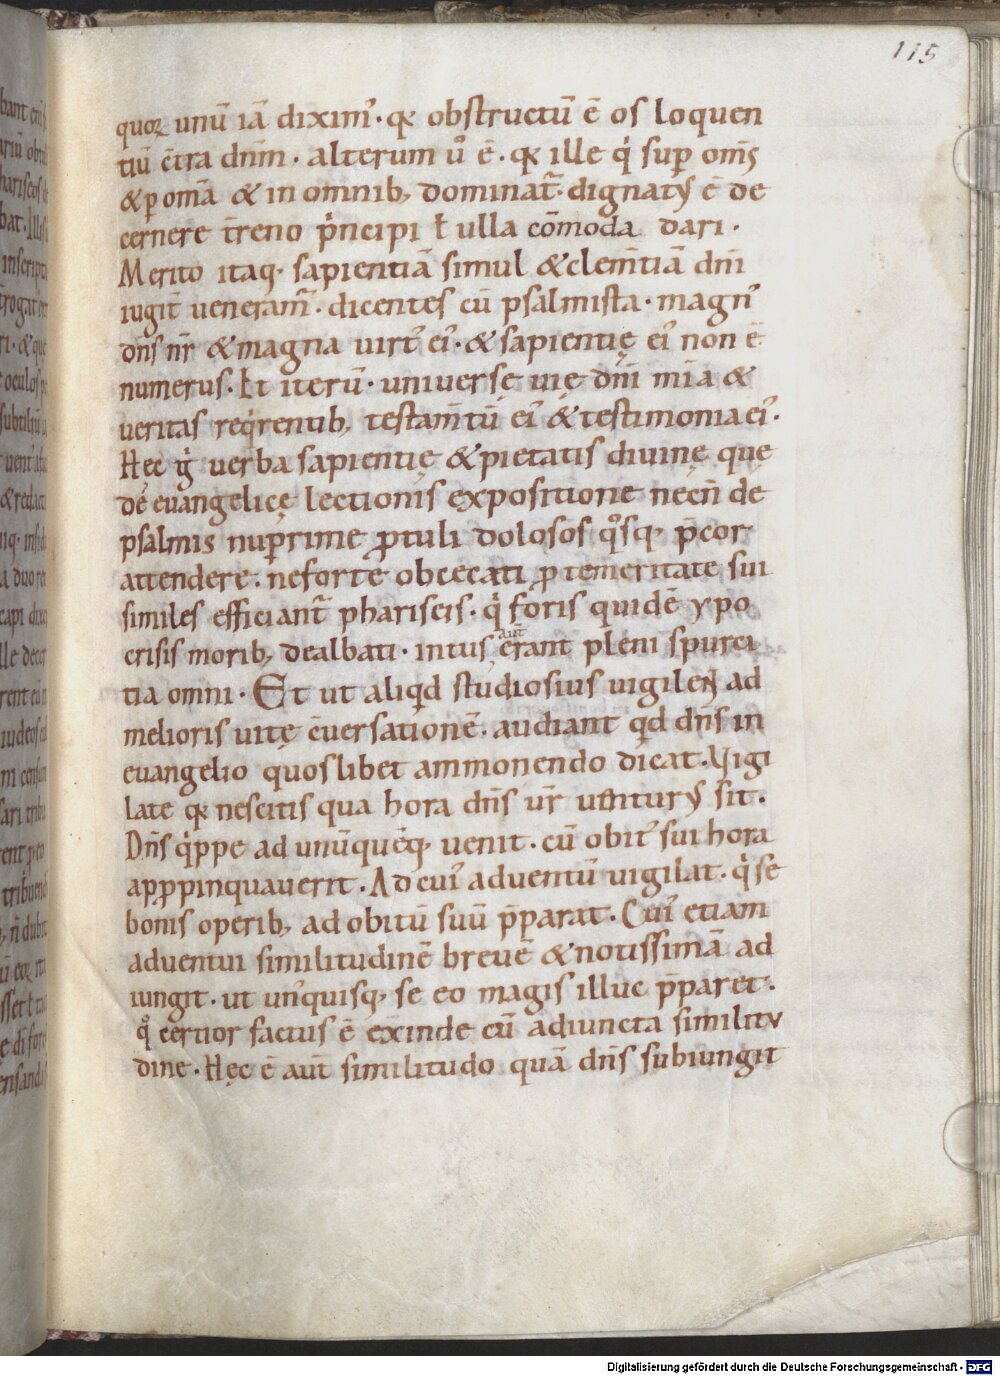 115
quoꝝ unū iā diximꝰ· qꝫ obstructū ē os loquen
tiū c̄tra dn̄m· alterum ů ē· qꝫ ille q̇ suꝑ om̄s
& ꝑ omā & in omnibꝫ dominat᷑ dignatꝰ ē de
cernere t̄reno pͥncipi ł ulla cōmoda dari·
Merito itaqꝫ sapientiā simul & clem̄tiā dn̄i
iugit̄ ueneram᷑· dicentes cū psalmista· magnꝰ
dn̄s nr̄ & magna uirtꝰ eiꝰ· & sapientię eiꝰ non ē
numerus· Et iterū· uniuersę uię dn̄i mia &
ueritas reqͥrentibꝫ testam̄tū eiꝰ & testimonia eiꝰ·
Hec g̊ uerba sapientię & pietatis diuinę quę
de euangelicę lectionis expositione necn̄ de
psalmis nuꝑrime ꝓtuli dolosos qͦsqꝫ p̄cor
attendere· ne forte obcecati ꝓ temeritate sui
similes efficiant᷑ phariseis· q̇ foris quidē ypo
crisis moribꝫ dealbati· intus aut̄ erant pleni spurci
tia omni· Et ut aliqͥd studiosius uigilent ad
melioris uitę c̄uersationē· audiant qd dn̄s in
euangelio quoslibet ammonendo dicat· Vigi
late qꝫ nescitis qua hora dn̄s ur̄ uenturꝰ sit·
Dn̄s qͥppe ad unūquēqꝫ uenit· cū obitꝰ sui hora
apꝓpinquauerit· Ad cuiꝰ aduentū uigilat· q̇ se
bonis operibꝫ ad obitū suū p̄parat· Cuiꝰ etiam
aduentui similitudinē breuē & notissimā ad
iungit· ut unꝰquisqꝫ se eo magis illuc p̄paret·
qͦ certior factus ē exinde cū adiuncta similitu
dine· Hęc ē aut̄ similitudo quā dn̄s subiungit
Digitalisierung gefördert durch die Deutsche Forschungsgemeinschaft - DFG